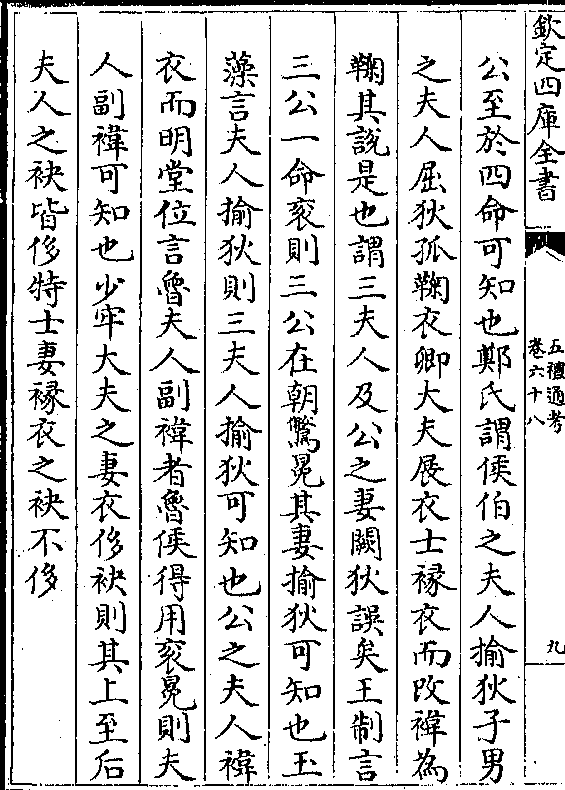 欽定四庫全書
五禮通考
卷六十八
九
公至於四命可知也鄭氏謂侯伯之夫人揄狄子男
之夫人屈狄孤鞠衣卿大夫展衣士褖衣而改褘為
鞠其說是也謂三夫人及公之妻闕狄誤矣王制言
三公一命衮則三公在朝鷩冕其妻揄狄可知也玉
藻言夫人揄狄則三夫人揄狄可知也公之夫人褘
衣而明堂位言魯夫人副褘者魯侯得用衮冕則夫
人副褘可知也少牢大夫之妻衣侈袂則其上至后
夫人之袂皆侈特士妻褖衣之袂不侈